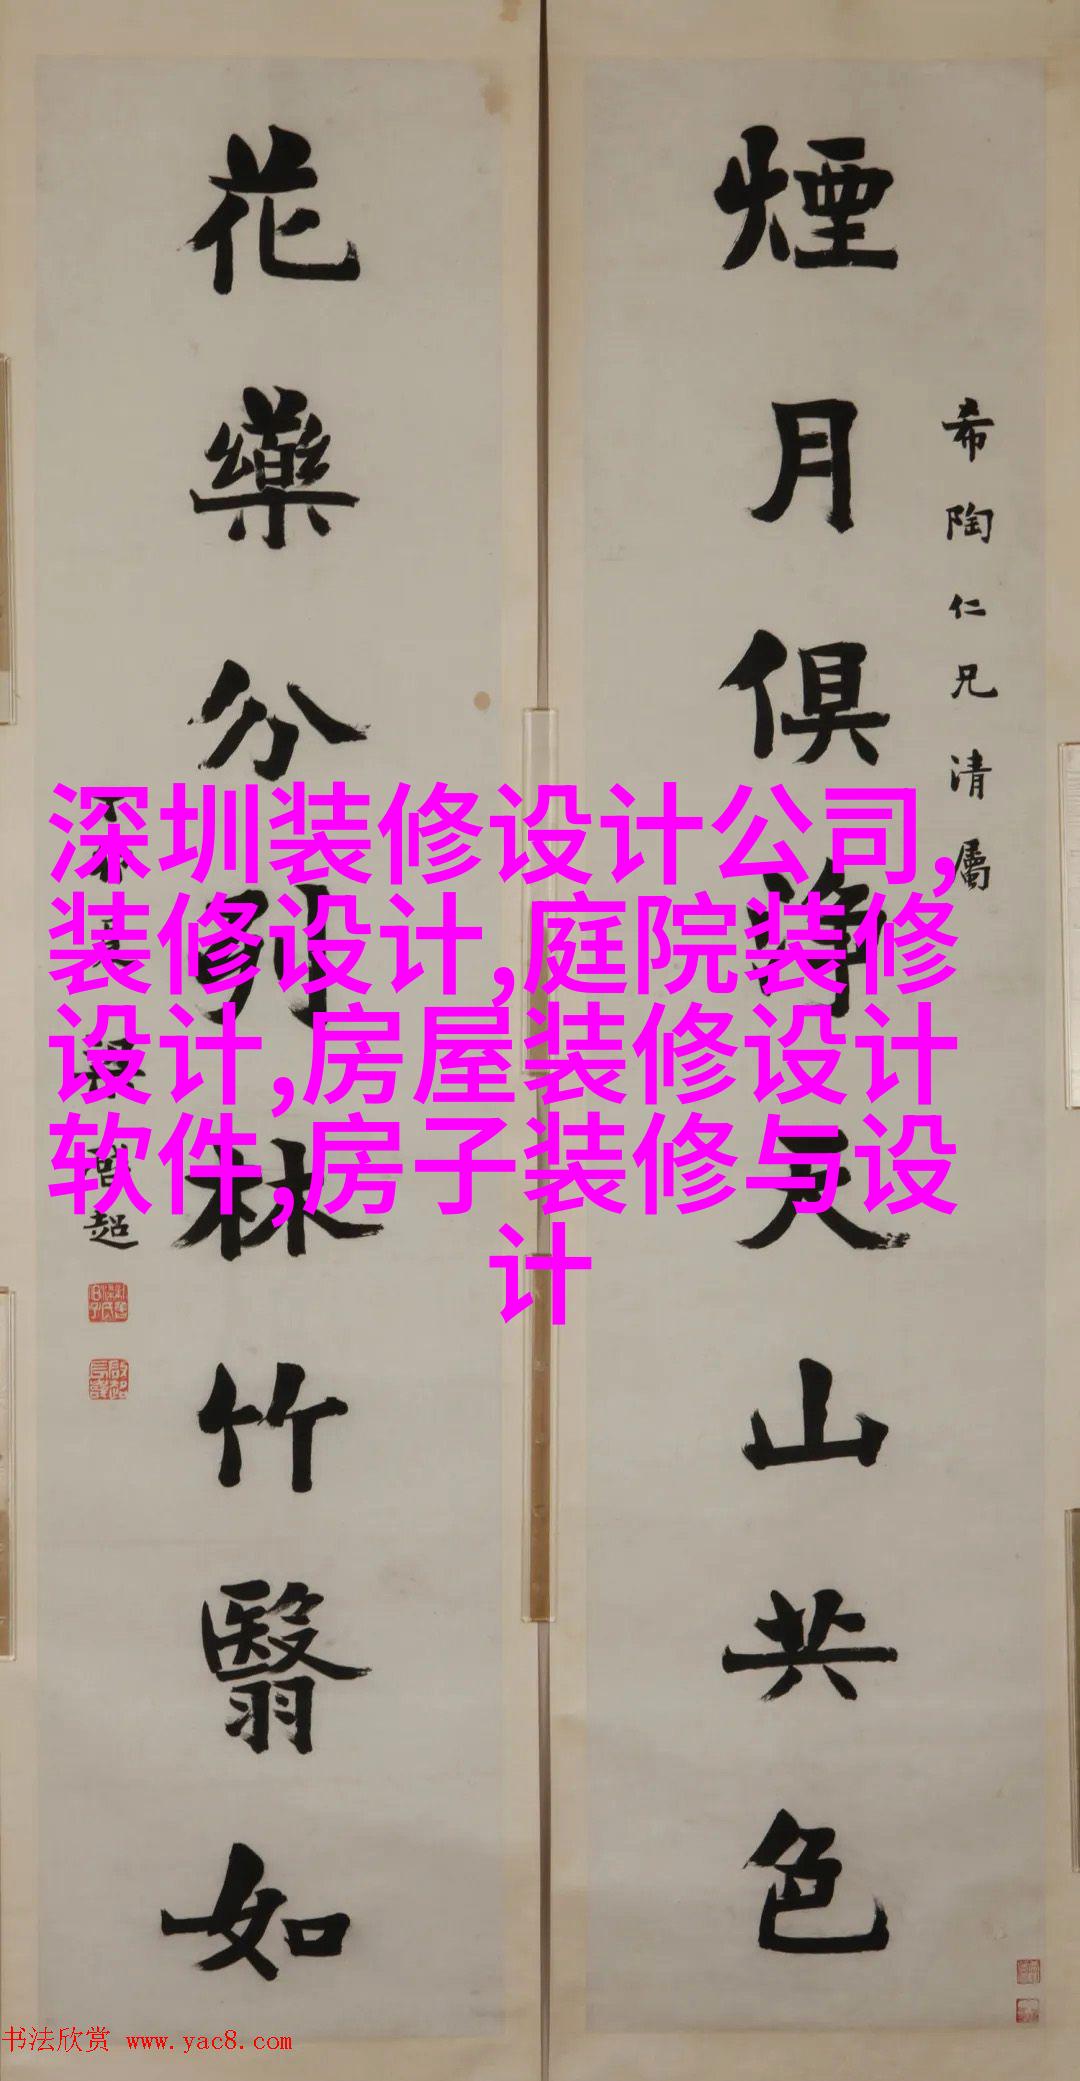 希陶仁兄清屬
煙月俱淨天山共色
花藥分列林竹翳如
超
深圳装修设计公司,
装修设计,庭院装修
设计,房屋装修设计
软件,房子装修与设
计
书法欣赏 www.yac8.com